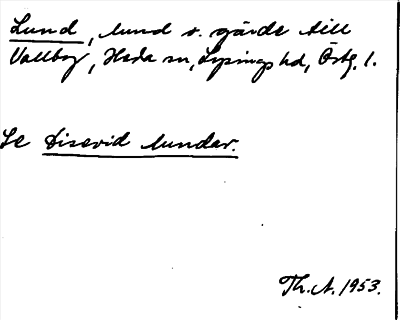 Lund, lund o. gärde till
Vallby, Heda sn, Lysings hd, Östg. l.
Se Disevid lundar.
Th. A. 1953.